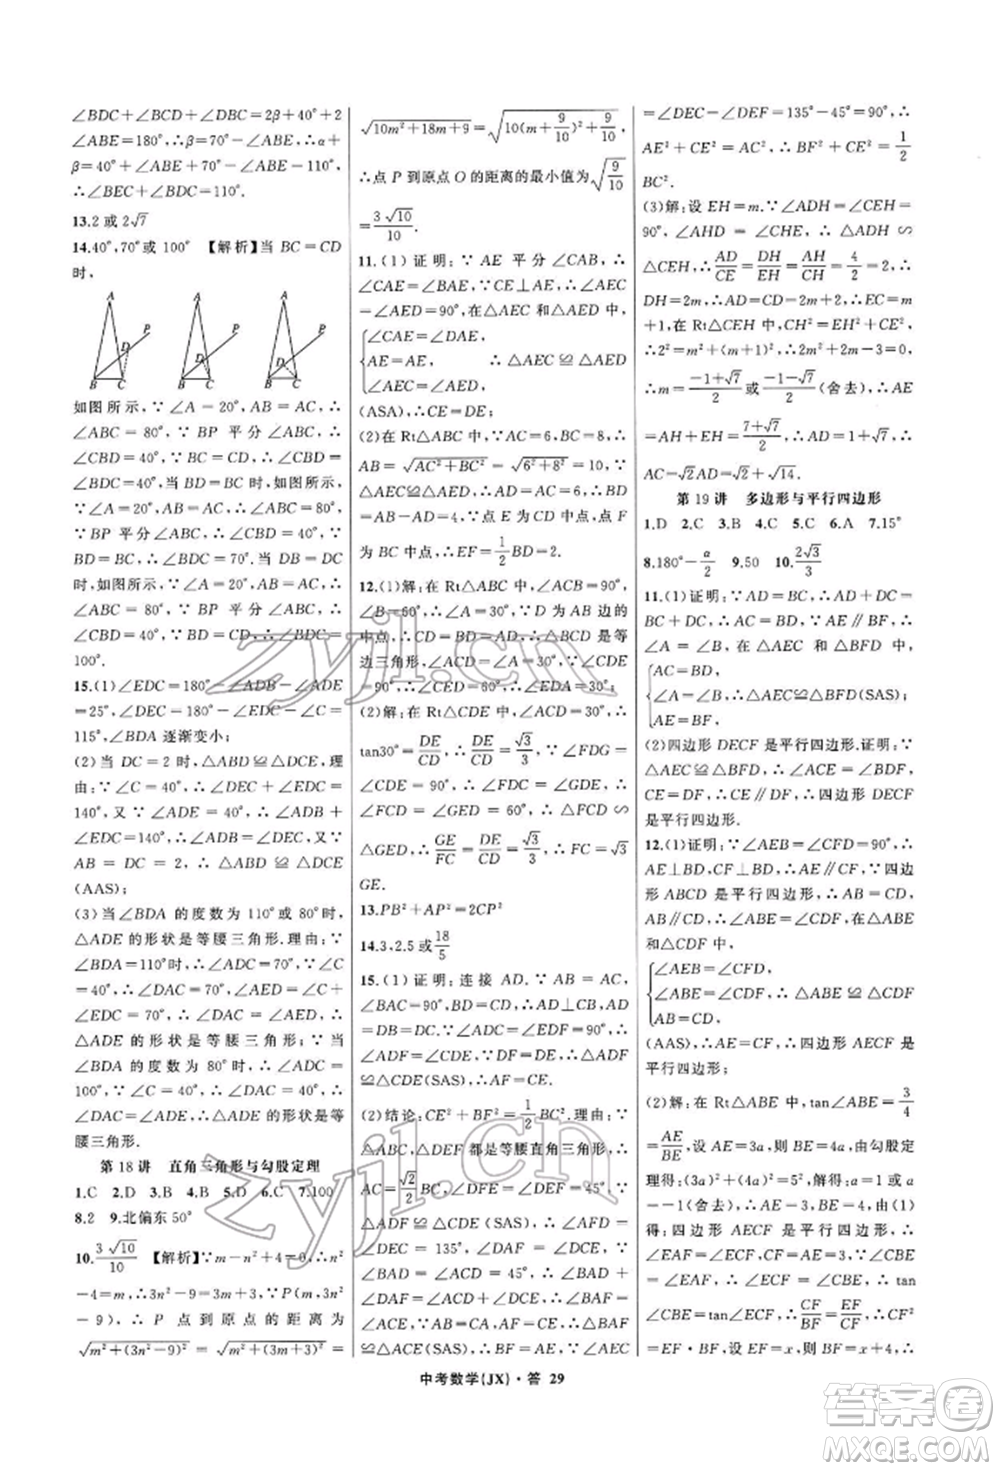 ∠BDC+∠BCD+∠DBC=2β+40°+2α+
∠ABE=180°,∴β=70°+∠ABE,∴α+
β=40°+∠ABE+70°-∠ABE=110°,
∴∠BEC+∠BEC=110°.
13.2或2√7
14.40°,70°或100° 【解析】当BC=CD
时,
A A A
P P P
D D D
B C B C B C
如图所示,∵∠A=20°,AB=AC,∴
∠ABC=80°,∵BP平分∠ABC,∴
∠CBD=40°,∵BC=CD,∴∠BDC=
∠CBD=40°;当BD=BC时,如图所
示,∵∠A=20°,AB=AC,∴∠ABC=
80°,∵BP平分∠ABC,∴∠CBD=
40°,∵BD=BC,∴∠BDC=70°;当
BD=CD时,如图所示,∵∠A=20°,
AB=AC,∴∠ABC=80°,∵BP平分
∠ABC,∴∠CBD=40°,∵BD=CD,
∴∠BCD=∠CBD=40°,∴∠BDC=
100°.
15.(1)∠EDC=180°-∠ADB-∠ADE
=25°,∠DEC=180°-∠EDC-∠C=
115°,∠BDA逐渐变小;
(2)当DC=2时,△ABD≌△DCE,理
由:∵∠C=40°,∴∠DEC+∠EDC=
140°,又∵∠ADE=40°,∴∠ADB+
∠EDC=140°,∴∠ADB=∠DEC,又∵
AB=DC=2,∴△ABD≌△DCE
(AAS);
(3)当∠BDA的度数为110°或80°时,
△ADE的形状是等腰三角形.理由:∵
∠BDA=110°时,∴∠ADC=70°,∵
∠C=40°,∴∠DAC=70°,∠AED=∠C+
∠EDC=70°,∴∠DAC=∠AED,∴
△ADE的形状是等腰三角形;∵∠BDA
的度数为80°时,∴∠ADC=100°,∵
∠C=40°,∴∠DAC=40°,∴
∠DAC=∠ADE,∴△ADE的形状是等
腰三角形.
第18讲 直角三角形与勾股定理
1.C 2.D 3.B 4.B 5.D 6.C 7.100
8.2 9.北偏东50°
10.3√10/10 【解析】∵m-n²+4=0,∴n²
-4=m,∴3n²=3m+3,∵P(m,3n²
-9),∴P点到原点的距离为
√(m²+(3n²-9)²)=√(m²+(3m+3)²)=
√(10m²+18m+9)=√(10(m+9/10)²+9/10),
∴点P到原点O的距离的最小值为√(9/10)
=3√10/10.
11.(1)证明:∵AE平分∠CAB,∴
∠CAE=∠BAE,∵CE⊥AE,∴∠AEC
=∠AED=90°,在△AEC和△AED中,
{∠CAE=∠DAE,
AE=AE, ∴△AEC≌△AED
∠AEC=∠AED,
(ASA),∴CE=DE;
(2)在Rt△ABC中,∵AC=6,BC=8,∴
AB=√(AC²+BC²)=√(6²+8²)=10,∵
△AEC≌△AED,∴AD=AC=6,∴BD=
AB-AD=4,∵点E为CD中点,点F
为BC中点,∴EF=1/2BD=2.
12.(1)解:在Rt△ABC中,∠ACB=90°,
∠B=60°,∴∠A=30°,∵点D为AB的
中点,∴AD=CD=DB,∴△BCD是等
边三角形,∴∠ACD=∠A=30°,∵∠CDE
=90°,∴∠CED=60°,∴∠EDA=30°;
(2)解:在Rt△CDE中,∠ACD=30°,∴
tan30°=DE/CD,∴DE/CD=√3/3,∵∠FDG=
∠CDE=90°,∴∠FDC=∠GDE,∵
∠FCD=∠GED=60°,∴△FCD∽
△GED,∴GE/FC=DE/CD=√3/3,∴FC=√3
GE.
13.PB²+AP²=2CP²
14.3,2.5或18/5
15.(1)证明:连接AD,∵AB=AC,
∠BAC=90°,BD=CD,∴AD⊥CB,AD
=CD,∵∠EDF=∠ADC=90°,∴
∠ADF=∠CDE,∵DF=DE,∴△ADF
≌△CDE(SAS),∴AF=CE;
(2)结论:CE²+BF²=1/2BC²,理由:∵
△ABC,△DFE都是等腰直角三角形,∴
AC=√2/2BC,DF=DE,∠DFE=∠DEF=
45°,∴△ADF≌△CDE(SAS),∴∠AFD
=∠DEC=135°,∠DAF=∠DCE,∵
∠BAD=∠ACD=45°,∴
∠BAF=∠ACE,∵AF=CE,AB=AC,
∴△BAF≌△ACE(SAS),
∴BF=AE,∵∠AEC=
∠DEC-∠DEF=135°-45°=90°,∴
AE²+CE²=AC²,∴BF²+CE²=1/2
BC².
(3)解:设EH=m.∵∠ADH=∠CEH=
90°,∠AHD=∠CHE,∴△ADH∽
△CEH,∴AD/CE=DH/EH=AH/CH=4/2=2,∴
DH=2m,∴AD=CD=2m+2,∴EC=m
+1,在Rt△CEH中,∵CH²=EH²+EC²,
∴2²=m²+(m+1)²,∴2m²+2m-3=0,
∴m=(-1+√7)/2或(-1-√7)/2(舍去),∴AE
=AH+EH=(7+√7)/2,∴AD=1+√7,∴
AC=√2AD=√2+√14.
第19讲 多边形与平行四边形
1.D 2.C 3.B 4.C 5.C 6.A 7.15°
8.180°-α/2 9.50 10.2√3/3
11.(1)证明:∵AD=BC,∴AD+DC=
BC+DC,∴AC=BD,∵AE∥BF,∴
∠A=∠B,在△AEC和△BFD中,
{AC=BD,
∠A=∠B,∴△AEC≌△BFD(SAS);
AE=BF,
(2)四边形DECF是平行四边形.证明:∵
△AEC≌△BFD,∴∠ACE=∠BDF,
CE=DF,∴CE∥DF,∴四边形DECF
是平行四边形.
12.(1)证明:∵∠AEB=∠CFD=90°,∴
AE⊥BD,CF⊥BD,∴AE∥CF,∵四边
形ABCD是平行四边形,∴AB=CD,
AB∥CD,∴∠ABE=∠CDF,在△ABE
和△CDF中,
{∠AEB=∠CFD,
∠ABE=∠CDF,∴△ABE≌△CDF
AB=CD,
(AAS),∴AE=CF,∴四边形AECF是
平行四边形;
(2)解:在Rt△ABE中,tan∠ABE=3/4
=AE/BE,设AE=3a,则BE=4a,由勾股定
理得:(3a)²+(4a)²=5²,解得:a=1或a
=-1(舍去),∴AE=3,BE=4,由(1)
得:四边形AECF是平行四边形,∴
∠EAF=∠ECF,CF=AE=3,∵∠CBE
=∠EAF,∴∠ECF=∠CBE,∴tan
∠CBE=tan∠ECF,∴CF/BF=EF/CF,∴CF²
=EF·BF,设EF=x,则BF=x+4,∴
中考数学(JX)·答 29
zyjl.cn
zyjl.cn
答案圈
MXQE.COM